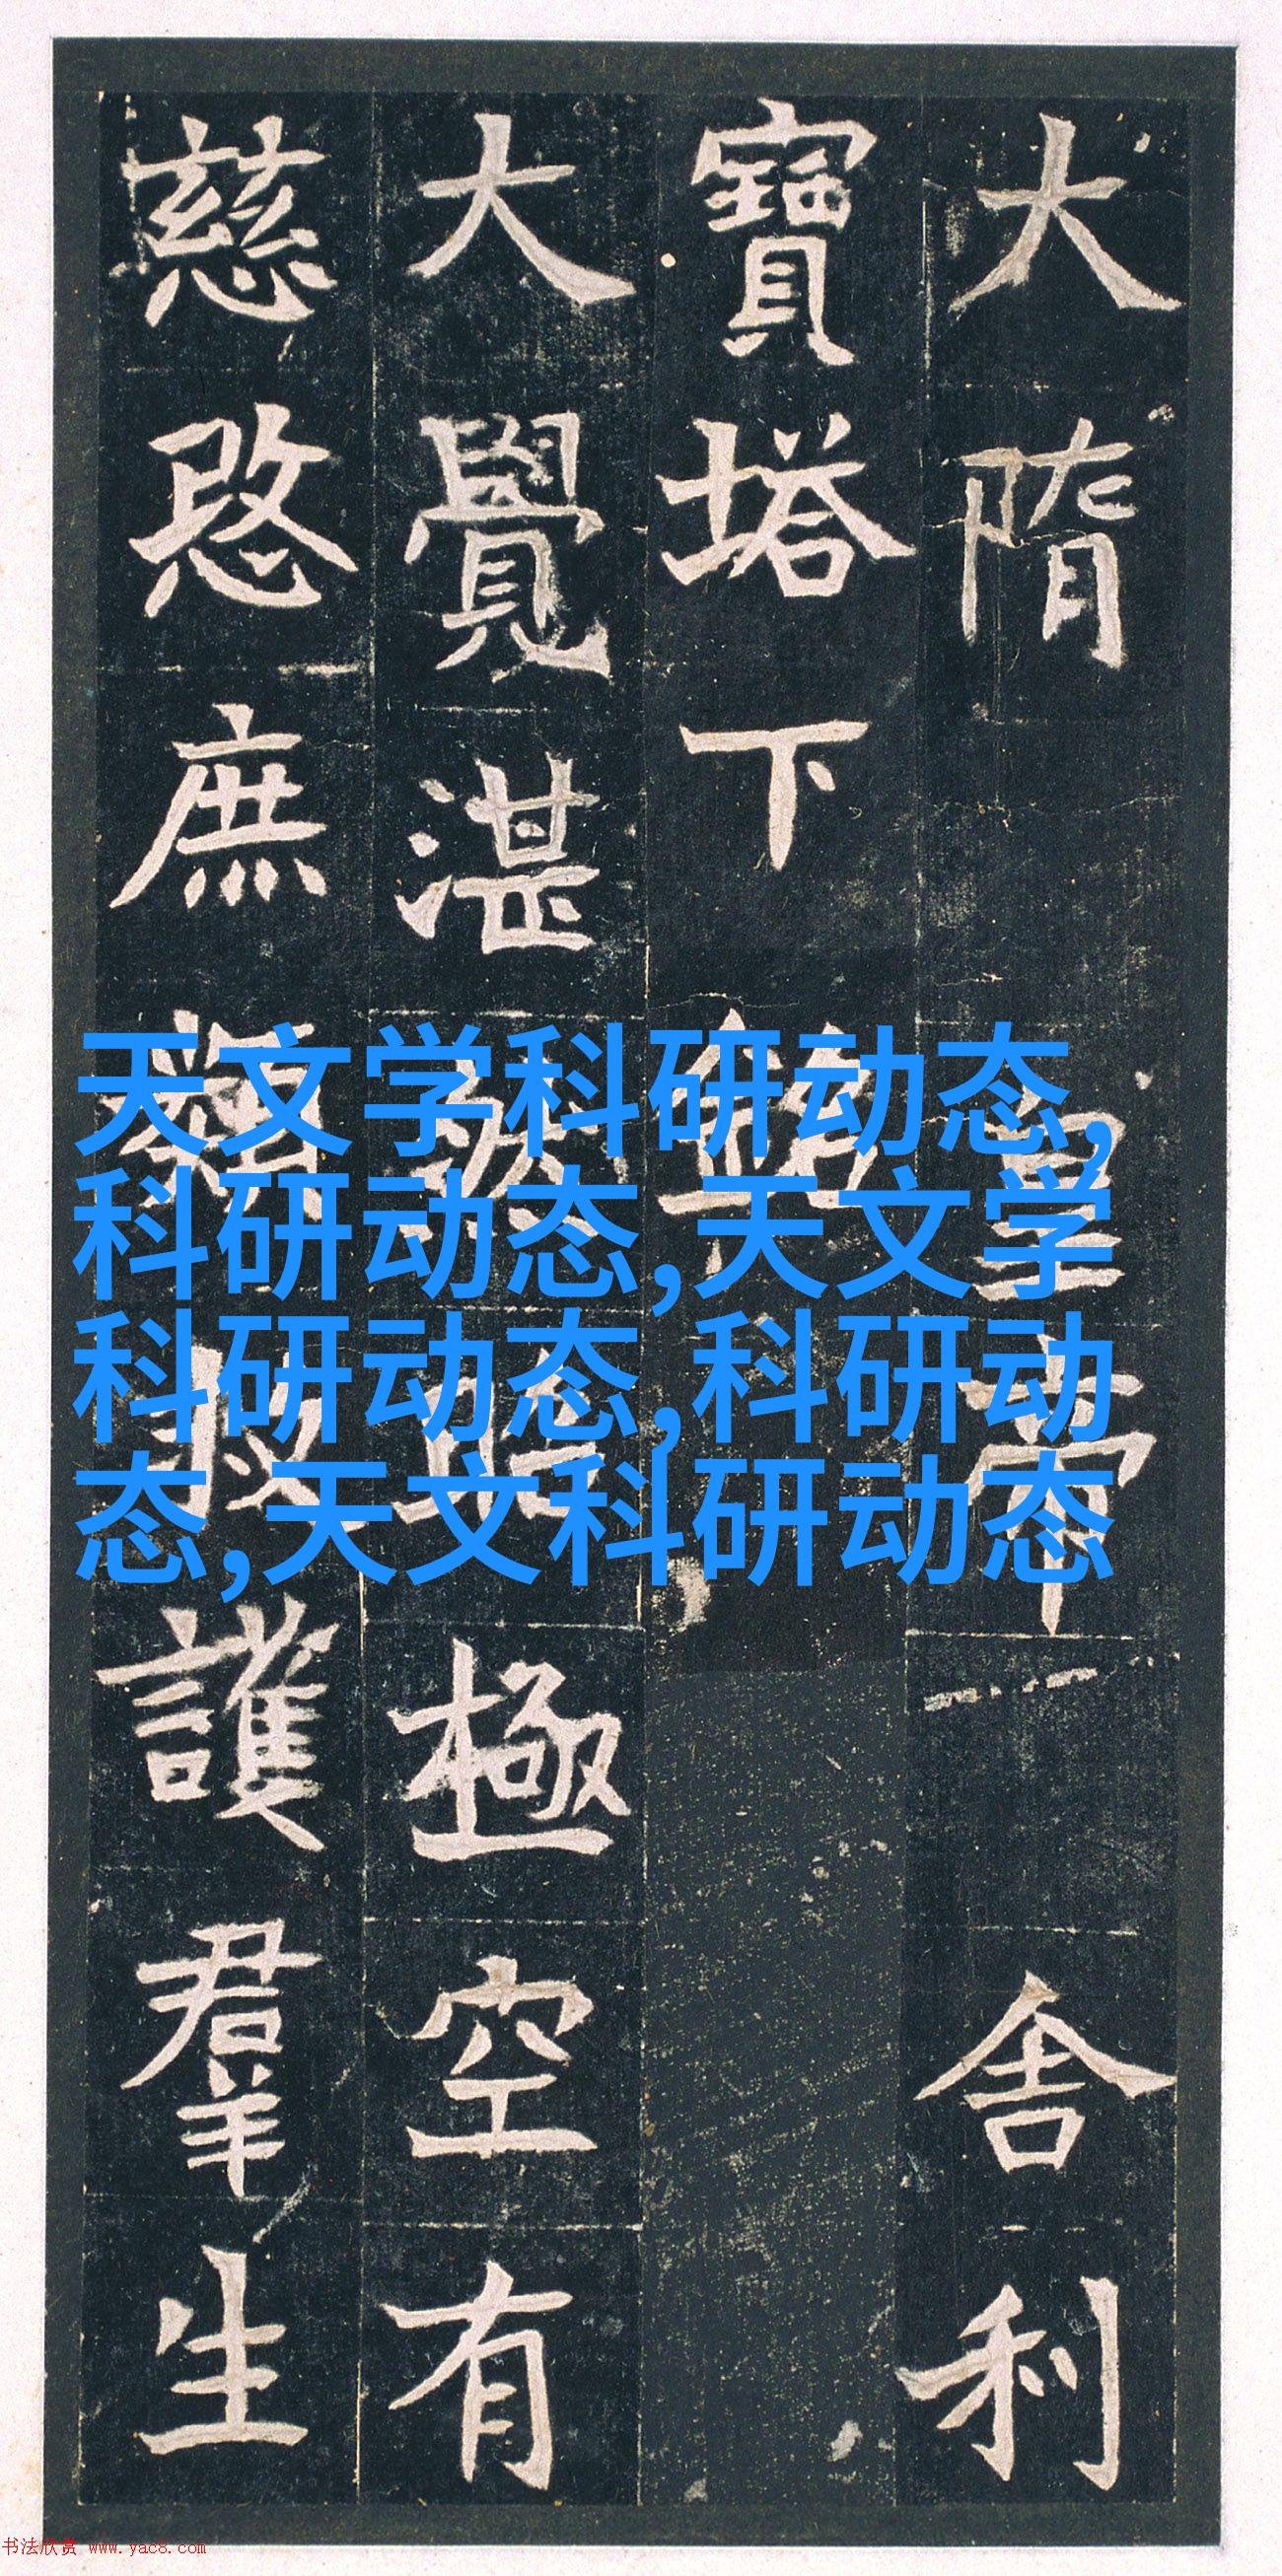 大隋皇帝舍利
寶塔下銘
大覺湛極空有
慈愍庶類護羣生
天文学科研动态,
科研动态,天文学
科研动态,科研动
态,天文科研动态
书法欣赏 www.yac8.com